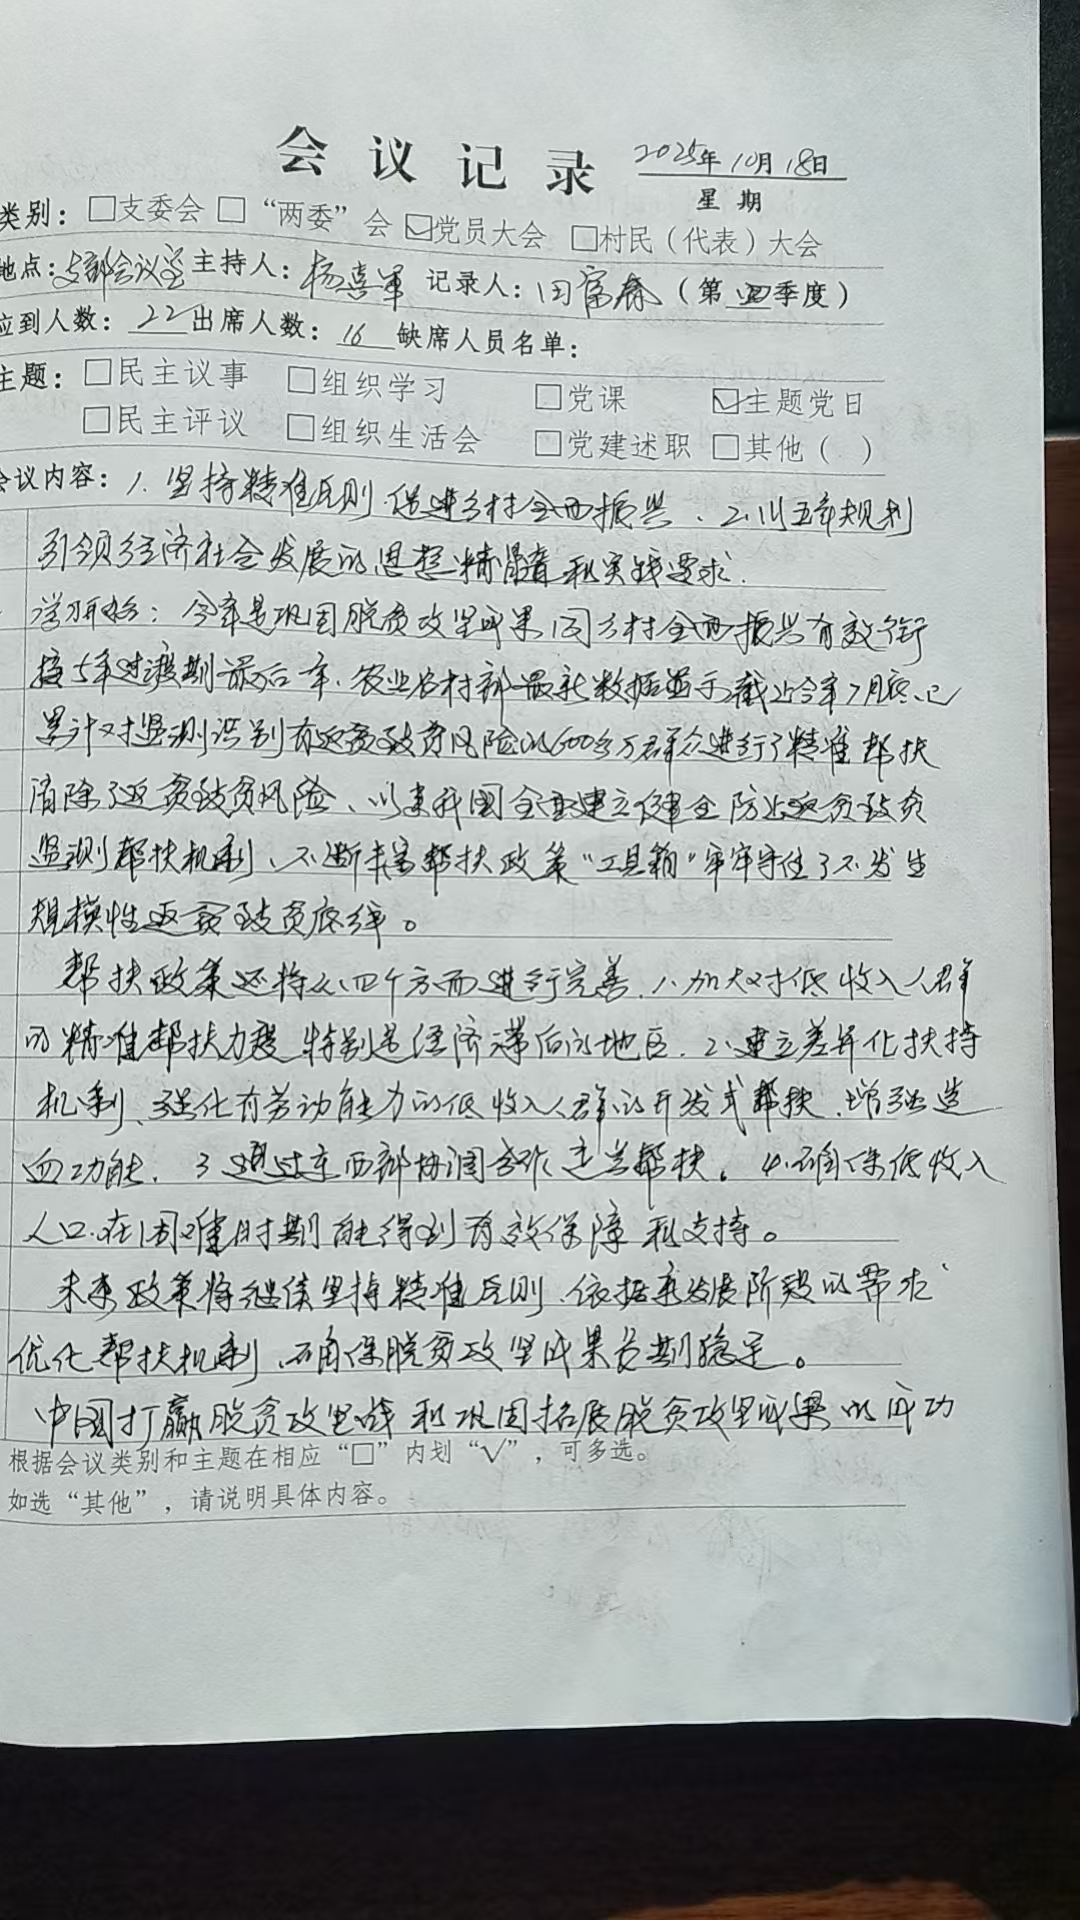 会议记录 2025年10月18日
星期
类别：□支委会 □“两委”会 ☑党员大会 □村民（代表）大会
地点：支部会议室 主持人：杨喜军 记录人：田富春（第四季度）
应到人数：22 出席人数：16 缺席人员名单：
主题：□民主议事 □组织学习 □党课 ☑主题党日
□民主评议 □组织生活会 □党建述职 □其他（ ）
会议内容：1.坚持精准原则 促进乡村全面振兴、2.以五年规划
引领经济社会发展的思想精髓和实践要求.
学习开始：今年是巩固脱贫攻坚成果同乡村全面振兴有效衔
接5年过渡期最后一年.农业农村部最新数据显示截止今年7月底.已
累计对监测识别有返贫致贫风险的600多万群众进行了精准帮扶
消除了返贫致贫风险、以来我国全面建立健全防止返贫致贫
监测帮扶机制、不断丰富帮扶政策“工具箱”牢牢守住了不发生
规模性返贫致贫底线。
帮扶政策还将从四个方面进行完善.1.加大对低收入人群
的精准帮扶力度 特别是经济滞后的地区.2.建立差异化扶持
机制、强化有劳动能力的低收入人群的开发式帮扶.增强造
血功能.3.通过东西部协调合作 帮扶。4.确保低收入
人口.在困难时期能得到有效保障和支持。
未来政策将继续坚持精准原则.依据发展阶段的需求
优化帮扶机制、确保脱贫攻坚成果长期稳定。
中国打赢脱贫攻坚战和巩固拓展脱贫攻坚成果的成功
根据会议类别和主题在相应“□”内划“√”，可多选。
如选“其他”，请说明具体内容。